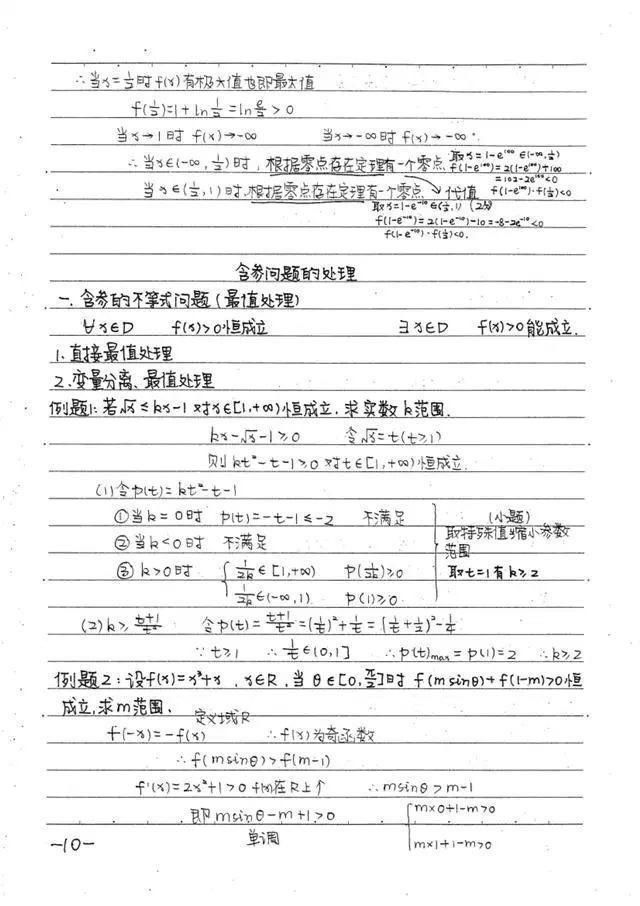 ∴当x=1/2时f(x)有极大值也即最大值
f(1/2)=1+ln1/2=ln e/2>0
当x→1时 f(x)→-∞ 当x→-∞时 f(x)→-∞.
∴当x∈(-∞,1/2)时，根据零点存在定理有一个零点 取x=1-e^100∈(-∞,1/2)
f(1-e^100)=2(1-e^100)+100
=102-2e^100<0
当x∈(1/2,1)时,根据零点存在定理有一个零点 代值 f(1-e^100)·f(1/2)<0
取x=1-e^-10∈(1/2,1)
f(1-e^-10)=2(1-e^-10)-10=-8-2e^-10<0
f(1-e^-10)·f(1/2)<0.
含参问题的处理
一.含参的不等式问题(最值处理)
∀x∈D f(x)>0恒成立 ∃x∈D f(x)>0能成立.
1.直接最值处理
2.变量分离、最值处理
例题1:若√x≤kx-1对x∈[1,+∞)恒成立,求实数k范围.
kx-√x-1≥0 令√x=t(t≥1)
则kt²-t-1≥0对t∈[1,+∞)恒成立.
(1)令p(t)=kt²-t-1
①当k=0时 p(t)=-t-1≤-2 不满足 (小题)
取特殊值缩小参数
②当k<0时 不满足 范围
③k>0时 1/2k∈[1,+∞) p(1/2k)≥0 取t=1有k≥2
1/2k∈(-∞,1) p(1)≥0
(2)k≥t+1/t² 令p(t)=t+1/t²=(1/t)²+1/t=(1/t+1/2)²-1/4
∵t≥1 ∴1/t∈(0,1] ∴p(t)max=p(1)=2 ∴k≥2
例题2:设f(x)=x³+x,x∈R,当θ∈[0,π/2]时f(msinθ)+f(1-m)>0恒
成立,求m范围、
定义域R
f(-x)=-f(x) ∴f(x)为奇函数
∴f(msinθ)>f(m-1)
f'(x)=2x²+1>0 f(x)在R上↑ ∴msinθ>m-1
即msinθ-m+1>0 m×0+1-m>0
单调 m×1+1-m>0
-10-